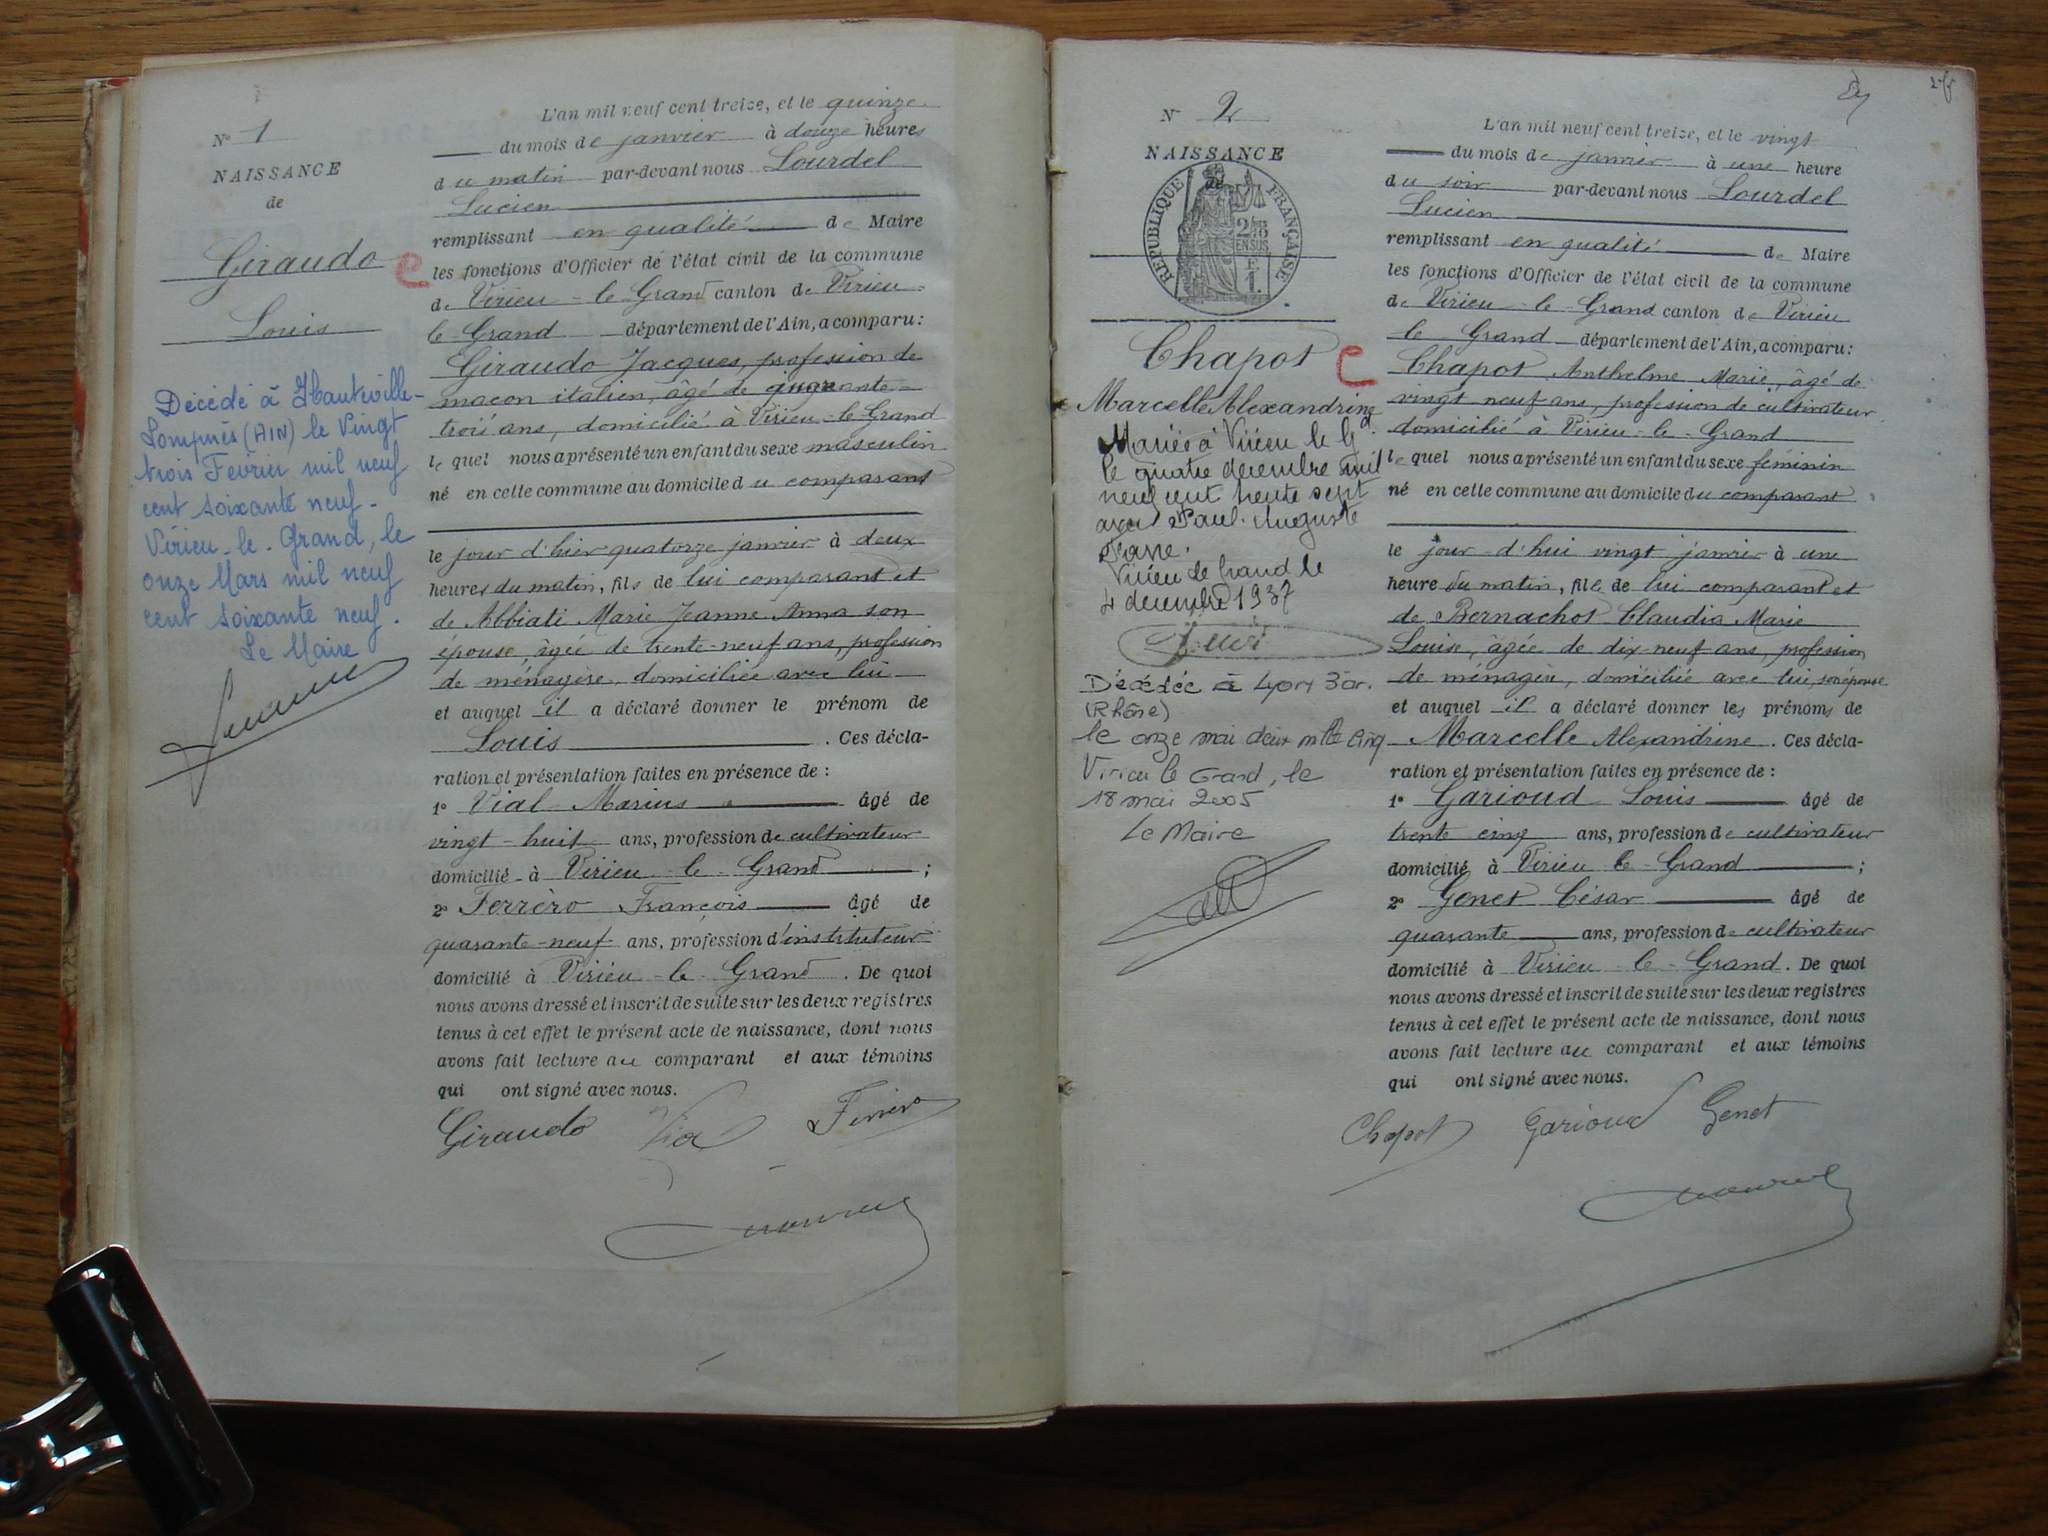 N° 1
NAISSANCE
de
Giraudo
Louis
Décédé à Hauteville-
Lompnés (AIN) le Vingt
trois Février mil neuf
cent soixante neuf.
Virieu-le-Grand, le
onze Mars mil neuf
cent soixante neuf.
Le Maire
L'an mil neuf cent treize, et le quinze
du mois de janvier à douze heures
du matin par-devant nous Lourdel
Lucien
remplissant en qualité de Maire
les fonctions d'Officier de l'état civil de la commune
de Virieu-le-Grand canton de Virieu-
le-Grand département de l'Ain, a comparu :
Giraudo Jacques, profession de
maçon italien, âgé de quarante-
trois ans, domicilié à Virieu-le-Grand
lequel nous a présenté un enfant du sexe masculin
né en cette commune au domicile du comparant
le jour d'hier quatorze janvier à deux
heures du matin, fils de lui comparant et
de Abbiati Marie Jeanne Anna son
épouse, âgée de trente-neuf ans, profession
de ménagère, domiciliée avec lui
et auquel il a déclaré donner le prénom de
Louis . Ces décla-
ration et présentation faites en présence de :
1° Vial Marius âgé de
vingt-huit ans, profession de cultivateur
domicilié à Virieu-le-Grand ;
2° Ferrero François âgé de
quarante-neuf ans, profession d'instituteur
domicilié à Virieu-le-Grand . De quoi
nous avons dressé et inscrit de suite sur les deux registres
tenus à cet effet le présent acte de naissance, dont nous
avons fait lecture au comparant et aux témoins
qui ont signé avec nous.
Giraudo Vial Ferrero
N° 2
NAISSANCE
de
RÉPUBLIQUE FRANÇAISE
2/10
EN SUS
F.
1.
Chapot
Marcelle Alexandrine
Mariée à Virieu le Gd
le quatre décembre mil
neuf cent trente sept
avec Paul Auguste
Virieu le Grand le
4 décembre 1937
Décédée à Lyon 3ar.
(Rhône)
le onze mai deux mille cinq
Virieu le Grand, le
18 mai 2005
Le Maire
L'an mil neuf cent treize, et le vingt
du mois de janvier à une heure
du soir par-devant nous Lourdel
Lucien
remplissant en qualité de Maire
les fonctions d'Officier de l'état civil de la commune
de Virieu-le-Grand canton de Virieu
le Grand département de l'Ain, a comparu :
Chapot Anthelme Marie, âgé de
vingt neuf ans, profession de cultivateur
domicilié à Virieu-le-Grand
lequel nous a présenté un enfant du sexe féminin
né en cette commune au domicile du comparant
le jour d'hui vingt janvier à une
heure du matin, fille de lui comparant et
de Bernachot Claudia Marie
Louise, âgée de dix-neuf ans, profession
de ménagère, domiciliée avec lui, son épouse
et auquel il a déclaré donner les prénoms de
Marcelle Alexandrine . Ces décla-
ration et présentation faites en présence de :
1° Garioud Louis âgé de
trente cinq ans, profession de cultivateur
domicilié à Virieu le-Grand ;
2° Genet César âgé de
quarante ans, profession de cultivateur
domicilié à Virieu-le-Grand . De quoi
nous avons dressé et inscrit de suite sur les deux registres
tenus à cet effet le présent acte de naissance, dont nous
avons fait lecture au comparant et aux témoins
qui ont signé avec nous.
Chapot Garioud Genet